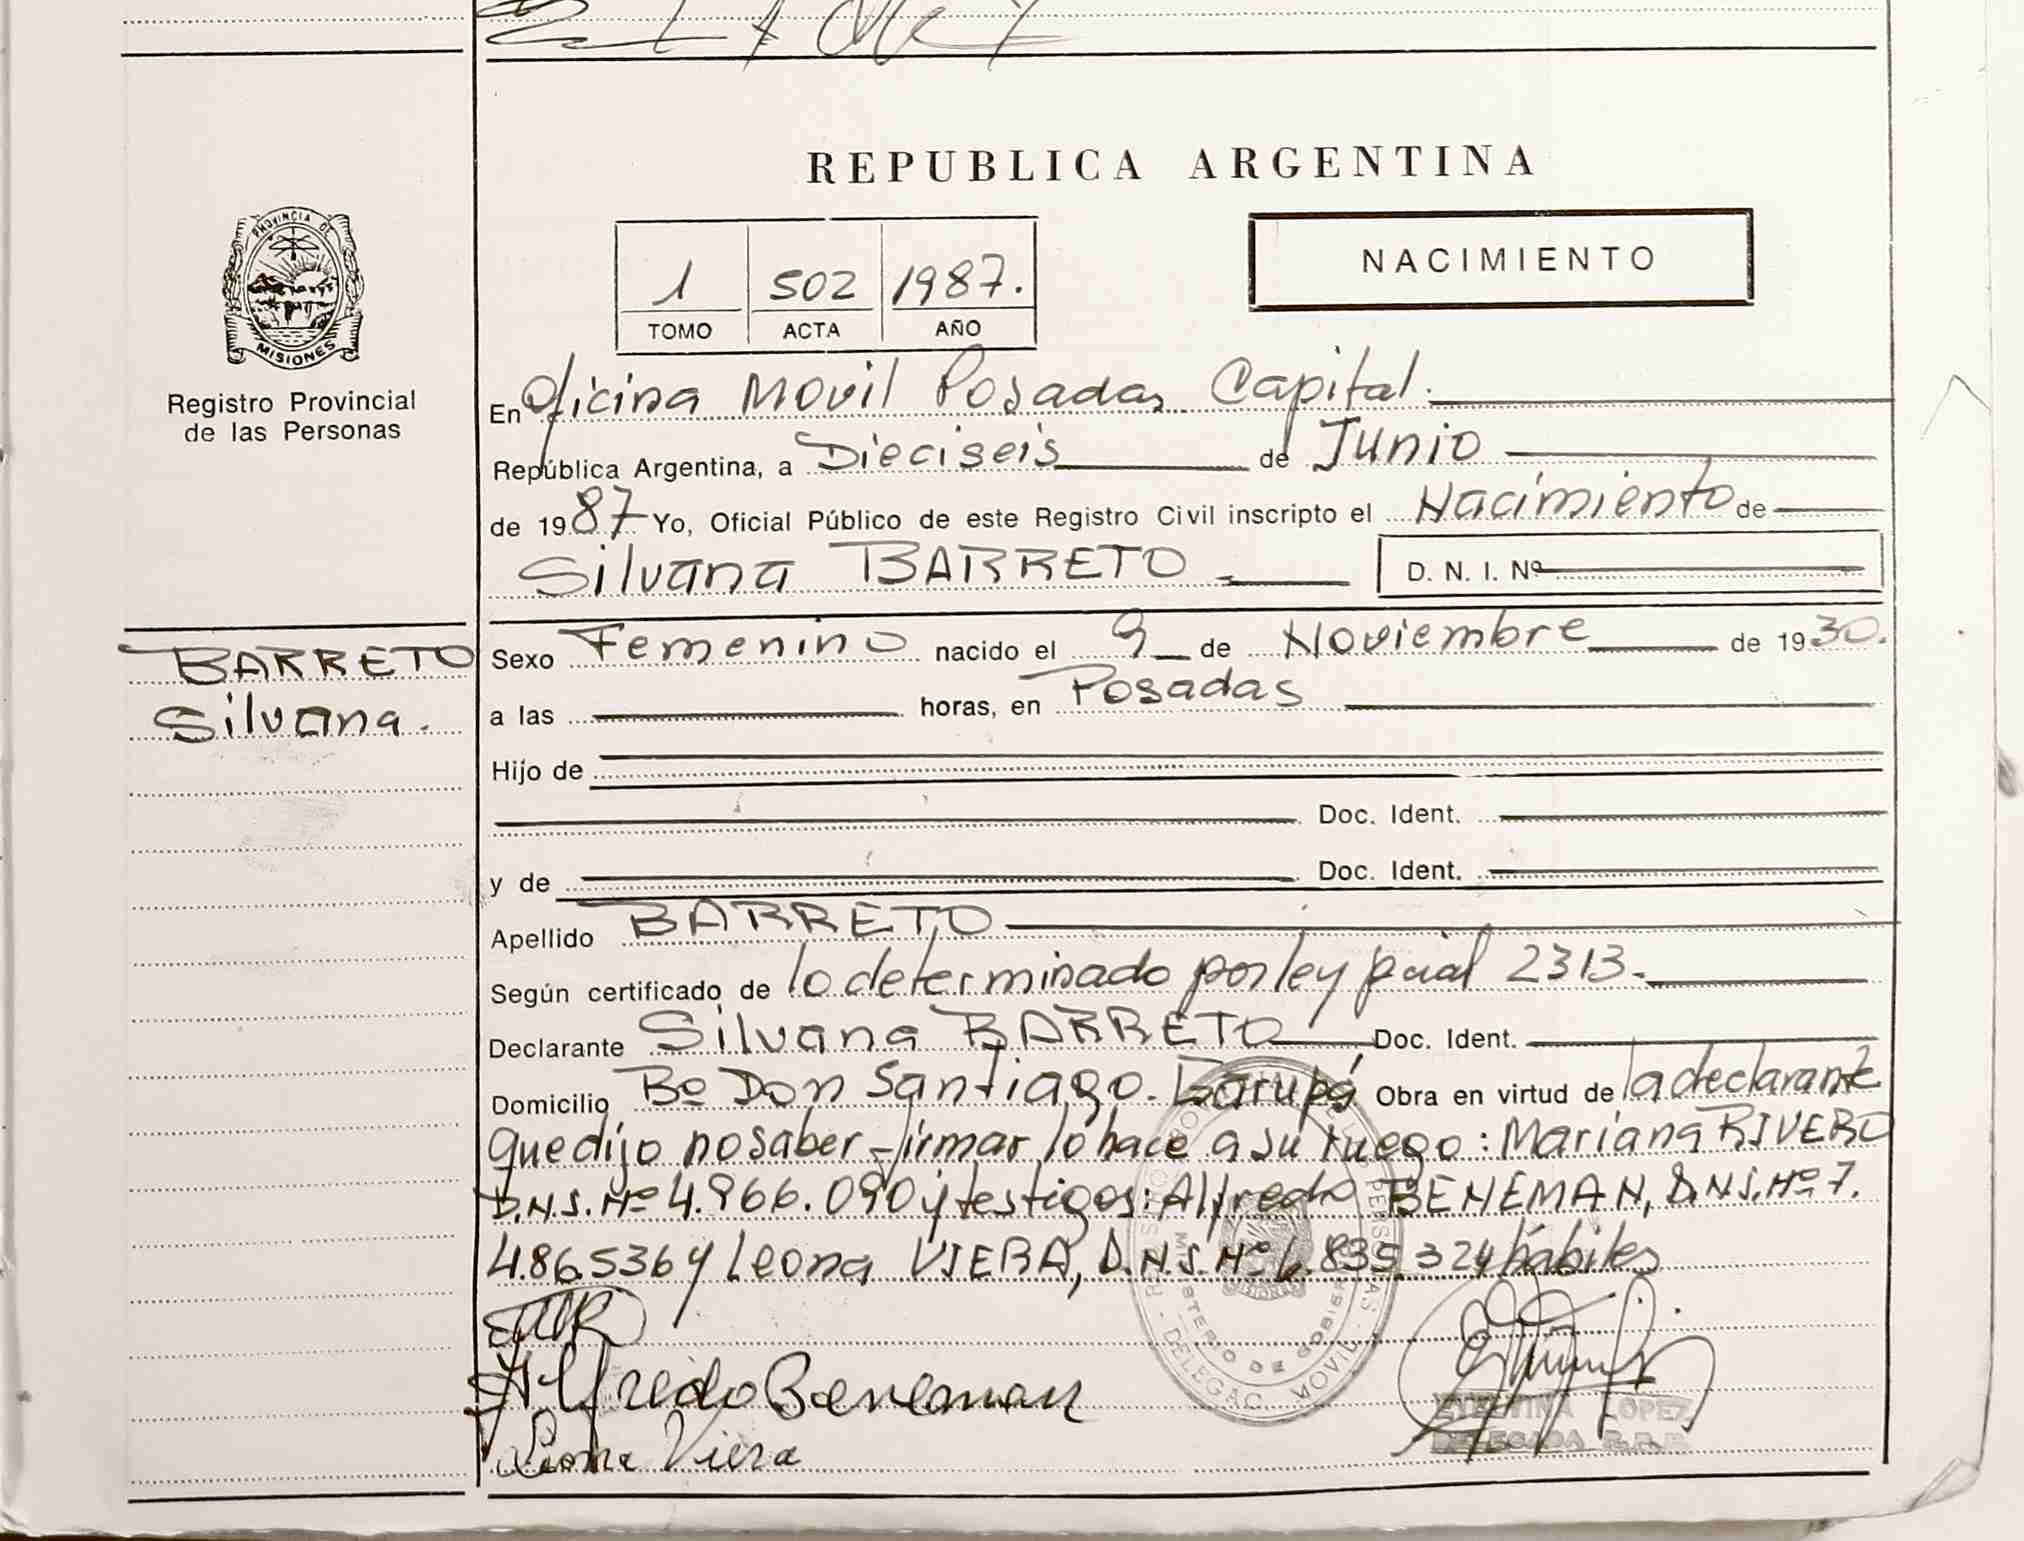 REPUBLICA ARGENTINA
PROVINCIA DE
MISIONES
Registro Provincial
de las Personas
1 502 1987.
TOMO ACTA AÑO
NACIMIENTO
En Oficina Movil Posadas Capital.
República Argentina, a Dieciseis de Junio
de 1987 Yo, Oficial Público de este Registro Civil inscripto el Nacimiento de
Silvana BARRETO D. N. I. Nº
BARRETO
Silvana.
Sexo Femenino nacido el 9 de Noviembre de 1930.
a las horas, en Posadas
Hijo de
Doc. Ident.
y de Doc. Ident.
Apellido BARRETO
Según certificado de lo determinado por ley pcial 2313.
Declarante Silvana BARRETO Doc. Ident.
Domicilio Bº Don Santiago. Garupá Obra en virtud de la declarante
que dijo no saber firmar lo hace a su ruego: Mariana RIVERO
D.N.I. Nº 4.966.090 y testigos: Alfredo BENEMAN, D.N.I. Nº 7.
4.86.5364 Leona VIERA, D.N.I. Nº 6.835.324 hábiles
Alfredo Beneman
Leona Viera
DELEGAC. MOVIL
LOPEZ
DELEGADA R.P.P.